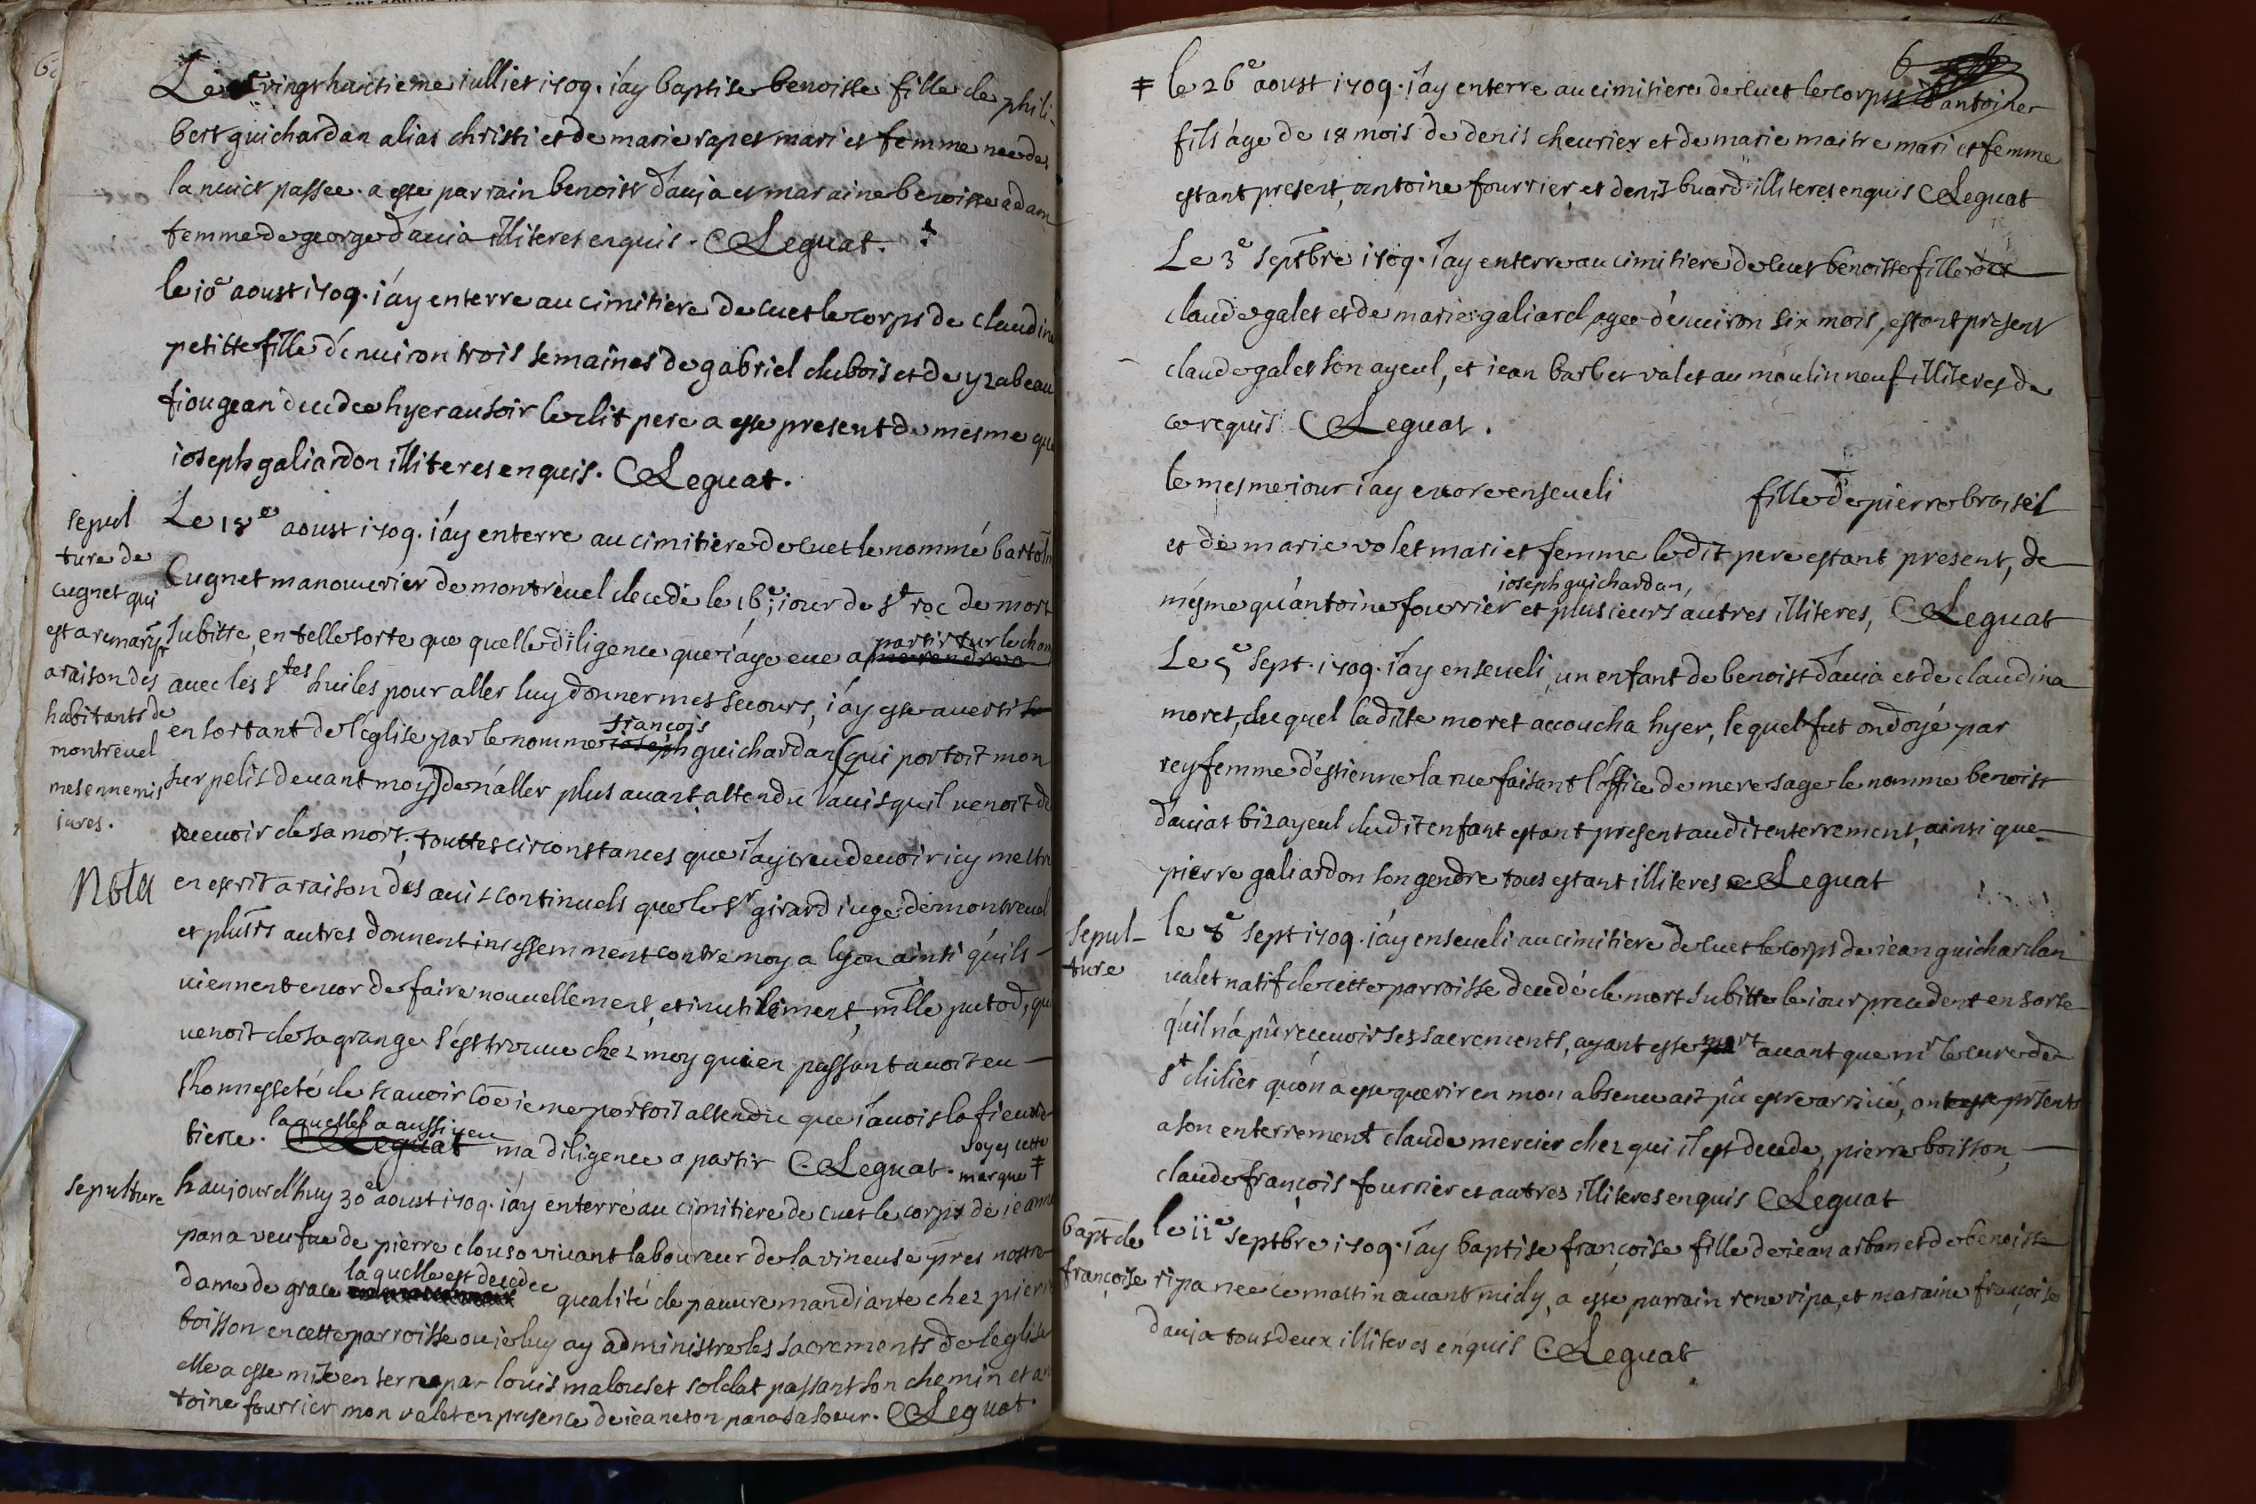 Le vingt huictieme iulliet 1709. i'ay baptise benoiste fille de phili-
bert guichardan alias christi et de marie rapet mari et femme nee de
la nuict passee. a este parrain benoist d'auja et maraine benoiste adam
femme de george d'auia illiteres enquis. C Leguat.
le 10e aoust 1709. i'ay enterre au cimitiere de cuet le corps de claudine
petitte fille d'enuiron trois semaines de gabriel dubois et de yzabeau
fiougean decedee hyer au soir le dit pere a este present de mesme que
ioseph galiardon illiteres enquis. C Leguat.
sepul
ture de
cugnet qui
est a remarqr
a raison des
habitants de
montreuel
mes ennemis
iures.
Le 18e aoust 1709. i'ay enterre au cimitiere de cuet le nommé bartolm
Cugnet manouurier de montreuel decedé le 16e; iour de st roc de mort
subitte, en telle sorte que quelle diligence que i'aye eue a partir sur le cham
auec les stes huiles pour aller luy donner mes secours, i'ay este auerti
en sortant de l'eglise par le nomme françois guichardan (qui portoit mon
surpelis deuant moy) de n'aller plus auant, attendu l'auis qu'il uenoit de
receuoir de sa mort; touttes circonstances que i'ay creu deuoir icy mettre
Nota
en escrit a raison des auis continuels que le sr girard iuge de montreuel
et plusrs autres donnent incessemment contre moy a lyon ainsi qu'ils
uiennent encor de faire nouuellement, et inutilement, mlle putod, qui
uenoit de sa grange s'est trouue chez moy qui en passant auoit eu
l'honnesteté de scauoir coe ie me portois attendu que i'auois la fieure
tierce. laquelle a aussi veu ma diligence a partir C. Leguat. voyes cette
marque ǂ
sepulture
haujourdhuy 30e aoust 1709. i'ay enterré au cimitiere de cuet le corps de ieanne
pana veufue de pierre clouso viuant laboureur de la vineuse pres nostre
dame de grace laquelle est decedee qualité de pauure mandiante chez pierre
boisson en cette parroisse ou ie luy ay administre les sacrements de l'eglise
elle a este mise en terre par louis malouset soldat passant son chemin et an
toine fourrier mon valet en presence de ieaneton pana sa soeur. C Leguat.
6
ǂ le 26e aoust 1709. i'ay enterre au cimitiere de cuet le corps d'antoine
fils age de 18 mois de denis cheurier et de marie maitre mari et femme
estant present, antoine fourrier, et denis buard illiteres enquis C Leguat
Le 3e septbre 1709. i'ay enterre au cimitiere de cuet benoiste fille de
claude galet et de marie galiard agee d'enuiron six mois, estant present
claude galet son ayeul, et iean barbet valet au moulin neuf illiteres de
ce requis C Leguat.
le mesme iour i'ay encore enseueli fille de pierre broisel
et de marie volet mari et femme le dit pere estant present, de
mésme qu'antoine fourrier ioseph guichardan, et plusieurs autres illiteres, C Leguat
Le 5e sept. 1709. i'ay enseueli, un enfant de benoist d'auia et de claudina
moret, duquel la ditte moret accoucha hyer, lequel fut ondoyé par
rey femme d'estienne la rue faisant l'office de mere sage le nomme benoist
d'auiat bizayeul du dit enfant estant present audit enterrement, ainsi que
pierre galiardon son gendre tous estant illiteres C Leguat
sepul-
ture
le 8e sept 1709. i'ay enseueli au cimitiere de cuet le corps de iean guichardan
valet natif de cette parroisse decedé de mort subitte le iour precedent en sorte
qu'il n'a pû receuoir ses sacrements, ayant este mort auant que mr le cure de
st didier qu'on a este querir en mon absence ait pû estre arriué, ont este prsents
a son enterrement claude mercier chez qui il est decede, pierre boisson,
claude françois fourrier et autres illiteres enquis C Leguat
bapt de
françoise
le 11e septbre 1709. i'ay baptise françoise fille de iean arban et de benoiste
ripa nee ce mattin auant midy, a este, parrain rene ripa, et maraine françoise
dauja tous deux illiteres enquis C. Leguat